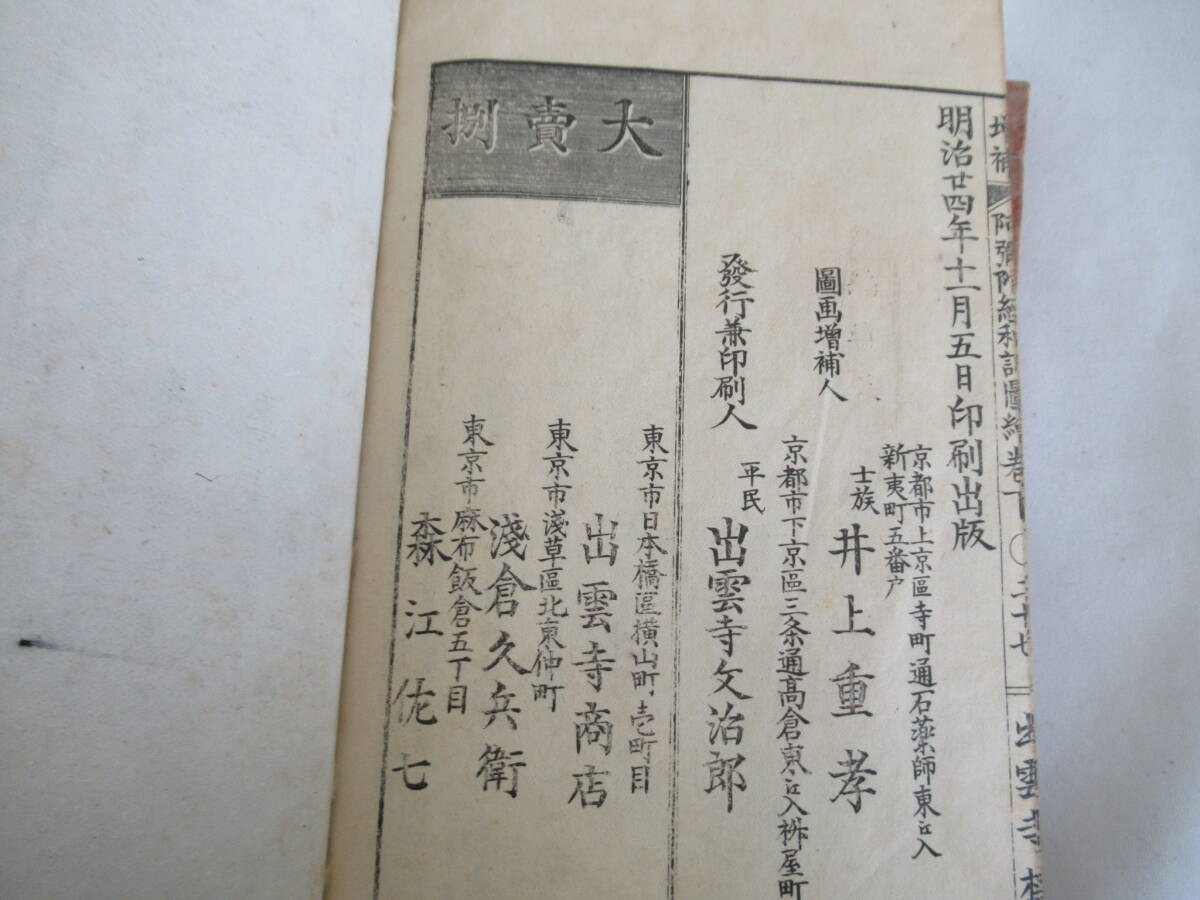 増補
阿彌陀經和訓圖繪卷下
〇三十七
出雲寺
明治廿四年十一月五日印刷出版
京都市上京區寺町通石藥師東ヘ入
新夷町五番戸
圖画增補人
士族
井上重孝
京都市下京區三条通髙倉東ヘ入桝屋町
發行兼印刷人
平民
出雲寺文治郎
大賣捌
東京市日本橋區横山町壱町目
出雲寺商店
東京市淺草區北東仲町
淺倉久兵衛
東京市麻布飯倉五丁目
森江佐七